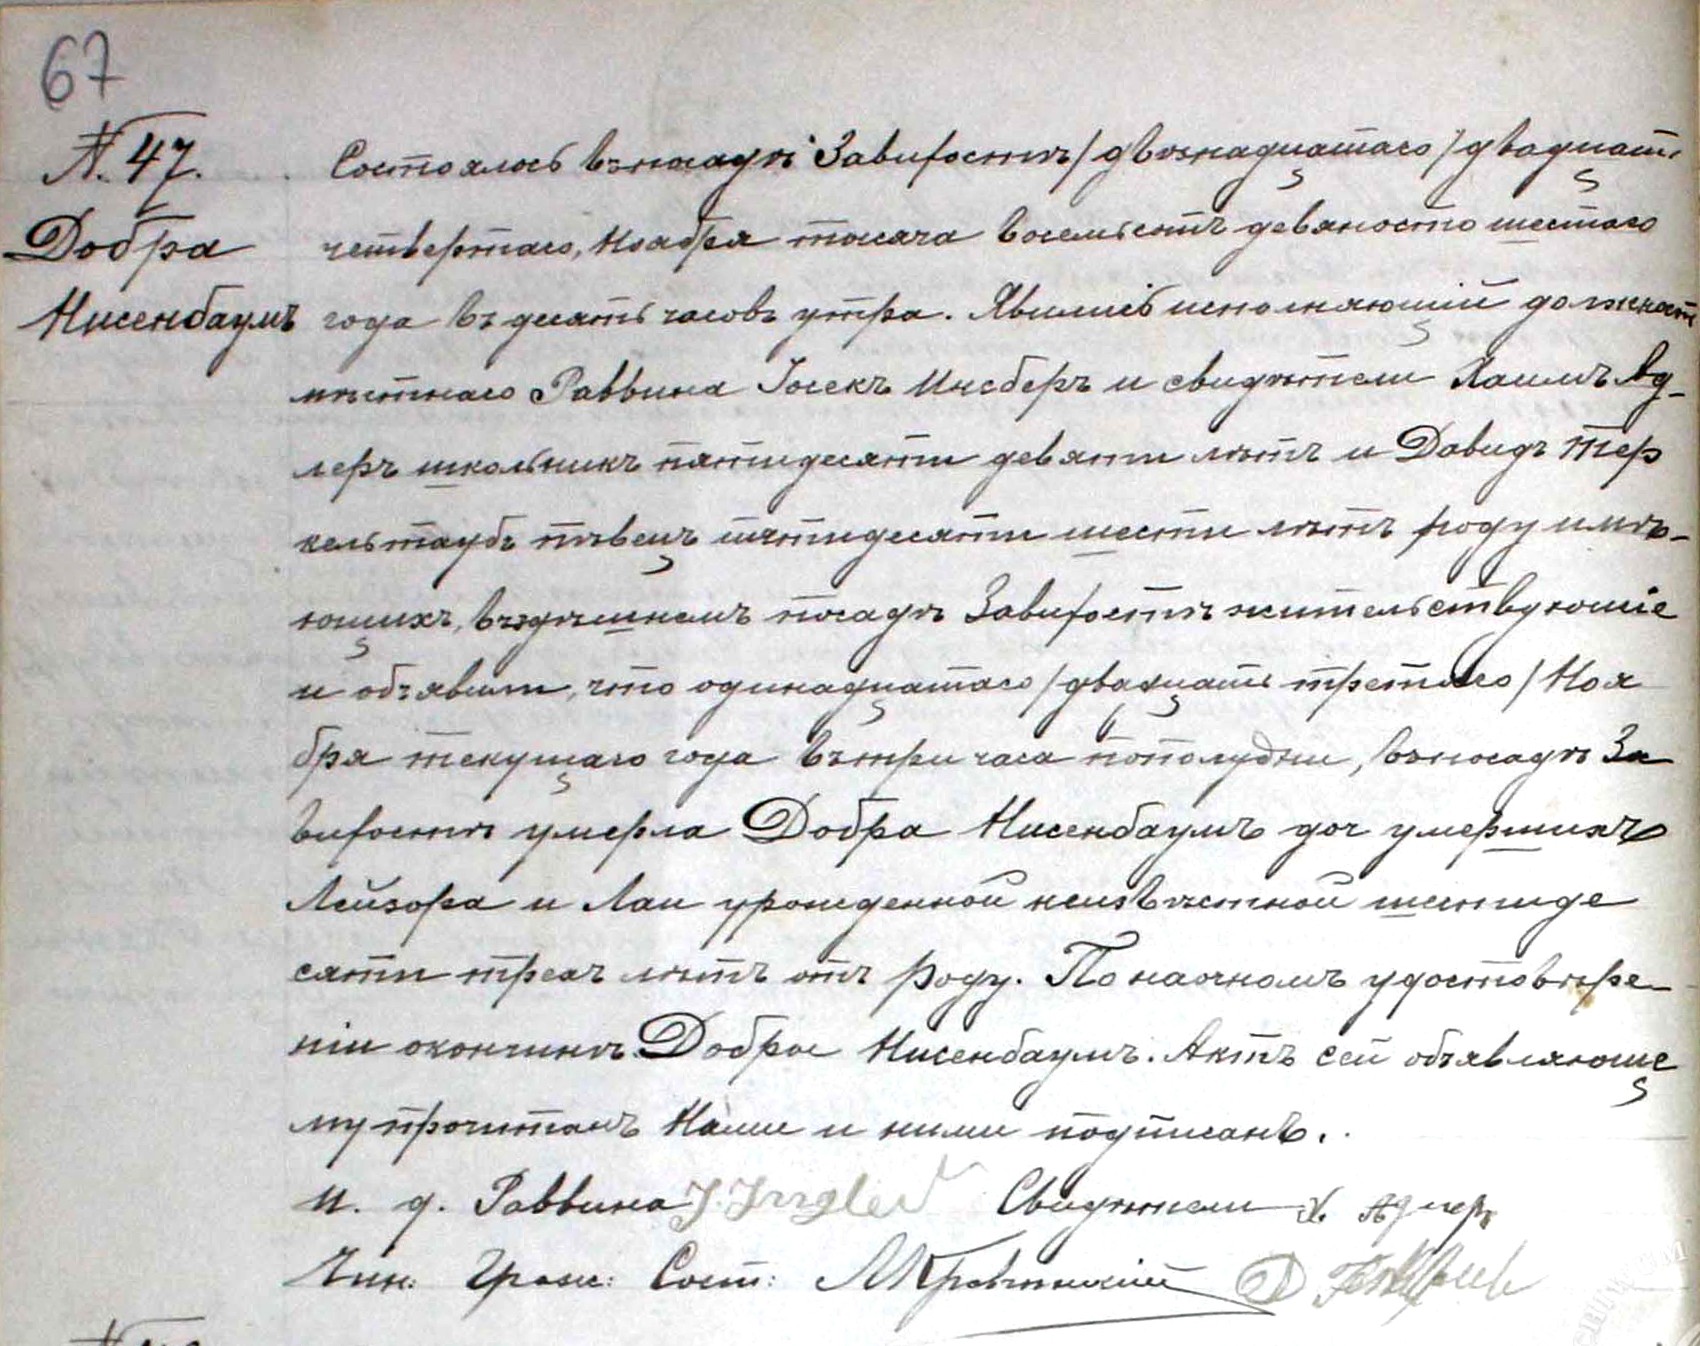 67
№ 47.
Добра
Нисенбаумъ
Состоялось въ посадѣ Завихостѣ /двѣнадцатаго/ двадцать
четвертаго, Ноября тысяча восемьсотъ девяносто шестаго
года въ десять часовъ утра. Явились исполняющій должность
мѣстнаго Раввина Іосекъ Ингберъ и свидѣтели Хаимъ Ад-
леръ школьникъ пятидесяти девяти лѣтъ и Давидъ Тер
кельтаубъ пѣвецъ пятидесяти шести лѣтъ роду имѣ-
ющихъ, въ здѣшнемъ посадѣ Завихостѣ жительствующіе
и объявили, что одинадцатаго /двадцать третьяго/ Ноя
бря текущаго года въ три часа пополудни, въ посадѣ За
вихостѣ умерла Добра Нисенбаумъ доч умершихъ
Лейзора и Лаи урожденной неизвѣстной шестиде
сяти трехъ лѣтъ отъ роду. По наочномъ удостовѣре-
ніи окончинѣ Добры Нисенбаумъ. Актъ сей объявляюще
му прочитанъ Нами и ними подписанъ.
И. д. Раввина Свидѣтели Х. Адлеръ
Чин: Граж: Сост: